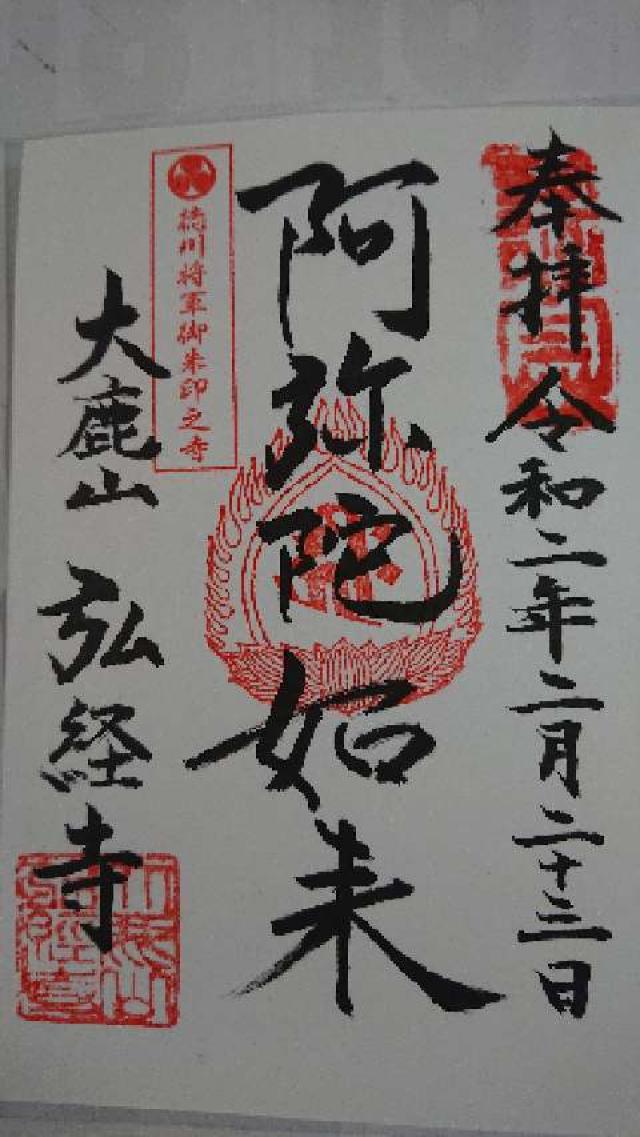 奉拝 令和二年二月二十三日
阿弥陀如来
徳川将軍御朱印之寺
大鹿山 弘経寺